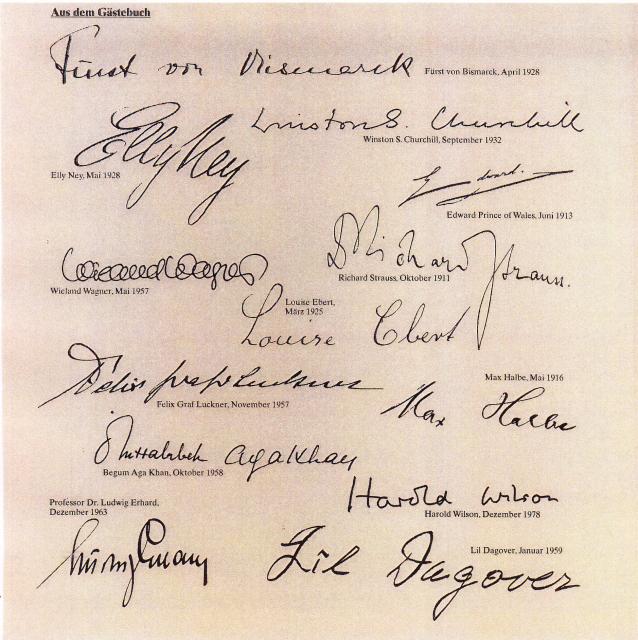 Aus dem Gästebuch
Fürst von Bismarck
Fürst von Bismarck, April 1928
Winston S. Churchill
Winston S. Churchill, September 1932
Elly Ney
Elly Ney, Mai 1928
Edward.
Edward Prince of Wales, Juni 1913
Richard Strauss.
Richard Strauss, Oktober 1911
Wieland Wagner
Wieland Wagner, Mai 1957
Louise Ebert,
März 1925
Louise Ebert
Felix Graf Luckner
Felix Graf Luckner, November 1957
Max Halbe, Mai 1916
Max Halbe
Aga Khan
Begum Aga Khan, Oktober 1958
Harold Wilson
Harold Wilson, Dezember 1978
Professor Dr. Ludwig Erhard,
Dezember 1963
Lil Dagover, Januar 1959
Lil Dagover